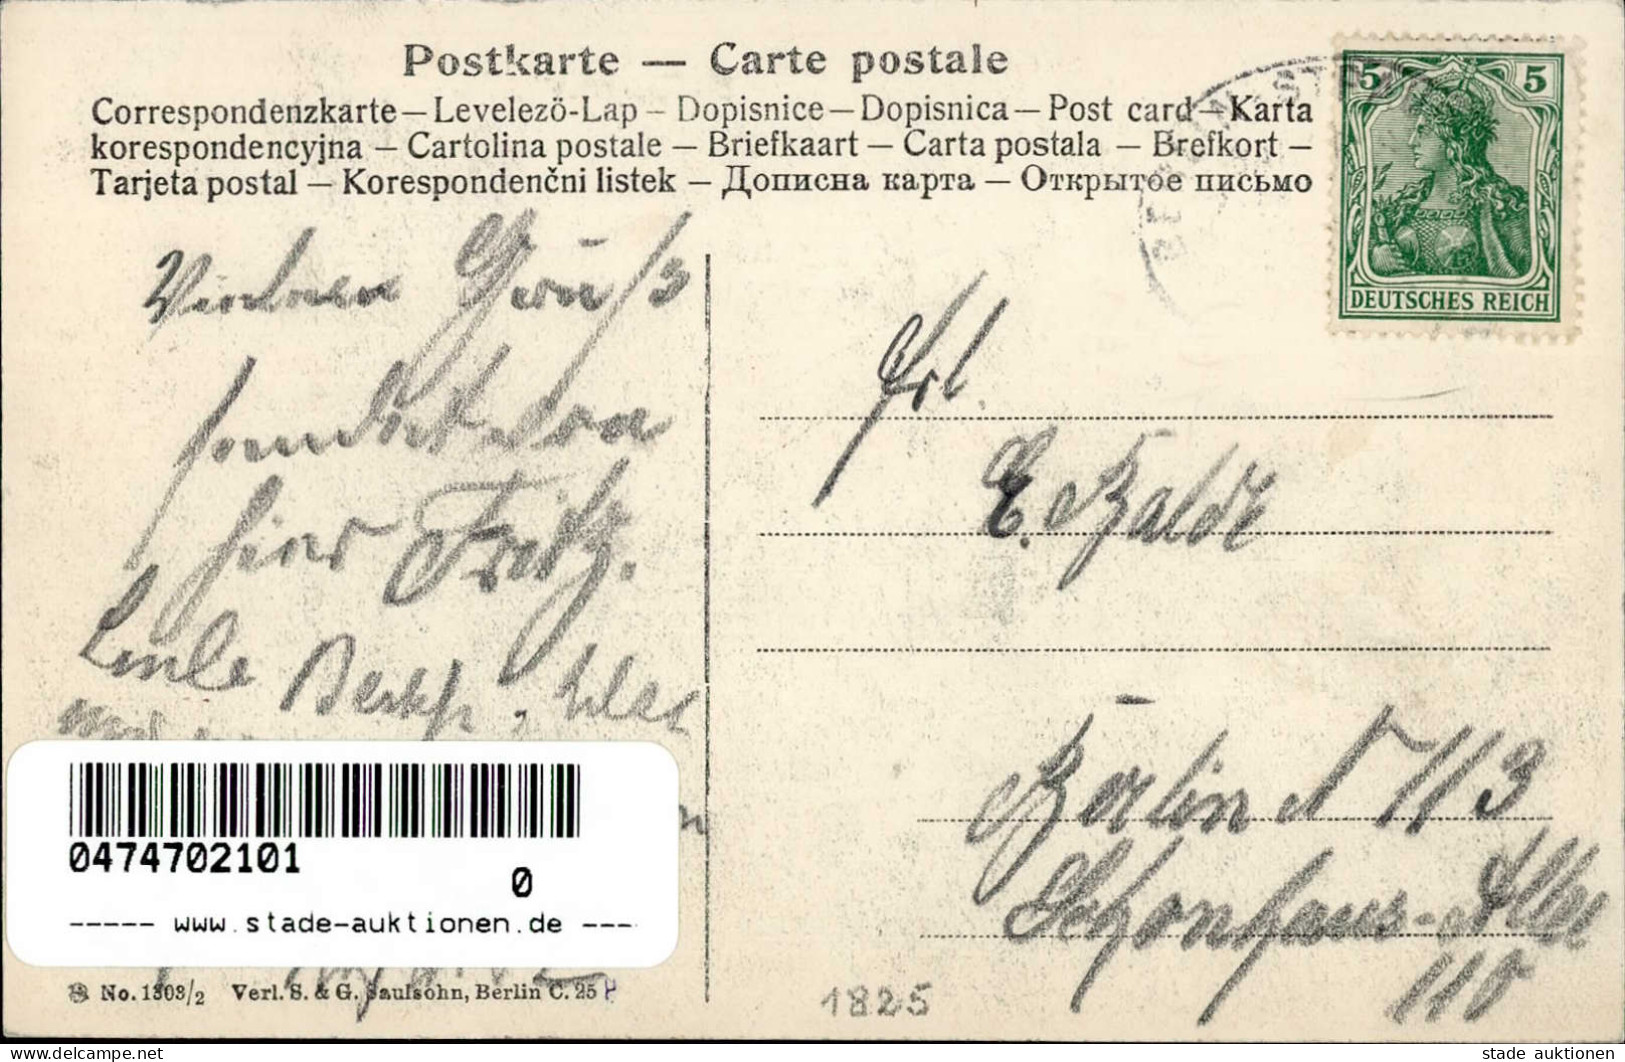 Postkarte — Carte postale
Correspondenzkarte — Levelezö-Lap — Dopisnice — Dopisnica — Post card — Karta
korespondencyjna — Cartolina postale — Briefkaart — Carta postala — Brefkort —
Tarjeta postal — Korespondenčni listek — Дописна карта — Открытое письмо
5 5
DEUTSCHES REICH
Gruß
sendet
hier Fritz.
Frl.
E. Balde
Berlin N 113
Schönhaus-Allee
110
0474702101
0
----- www.stade-auktionen.de ---
No. 1303/2 Verl. S. & G. Saulsohn, Berlin C. 25
1825
stade auktionen
www.delcampe.net